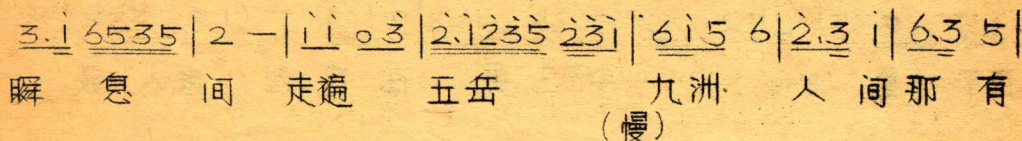 3.i 6535|2 —|i̇ i̇ 0 3̇|2̇.i̇2̇3̇5̇ 2̇3̇i̇|6i̇5 6|2̇.3̇ i̇|6.3 5|
瞬 息 间 走遍 五岳 九洲 人 间 那 有
（慢）